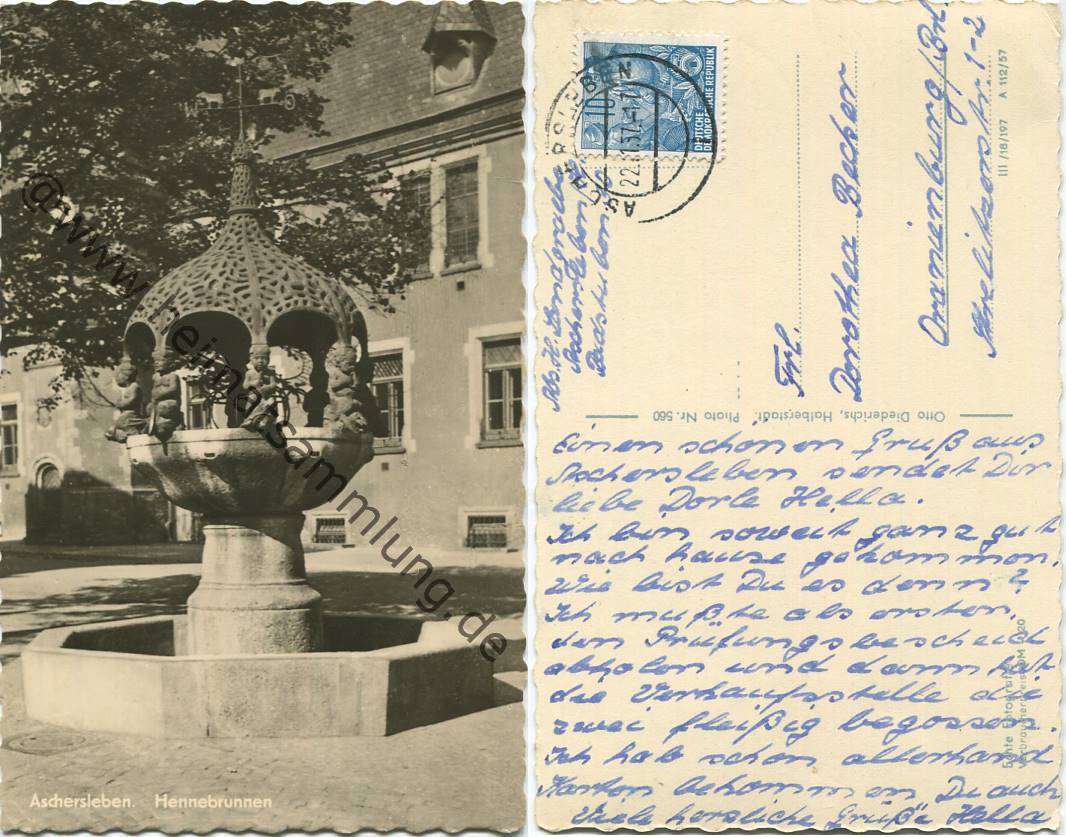 Aschersleben. Hennebrunnen
@www.heimatsammlung.de
DEUTSCHE
DEMOKRATISCHE REPUBLIK
10
ASCHERSLEBEN
22.
57.-17
Abs. H.
Aschersleben
Frl.
Dorothea Becher
Oranienburg/Bln.
Strelitzerstr. 1-2
III/18/197 A 112/57
Otto Diederichs, Halberstadt. Photo Nr. 560
Echte Fotografie
Verbraucherpreis DM 0,20
Einen schönen Gruß aus
Aschersleben sendet Dir
liebe Dorle Hella.
Ich bin soweit ganz gut
nach hause gekommen.
Wie bist Du es denn?
Ich mußte als ersten
den Prüfungsbescheid
abholen und dann hat
die Verkaufsstelle die
zwei fleißig begossen.
Ich hab schon allerhand
Karten bekommen Du auch
Viele herzliche Grüße Hella